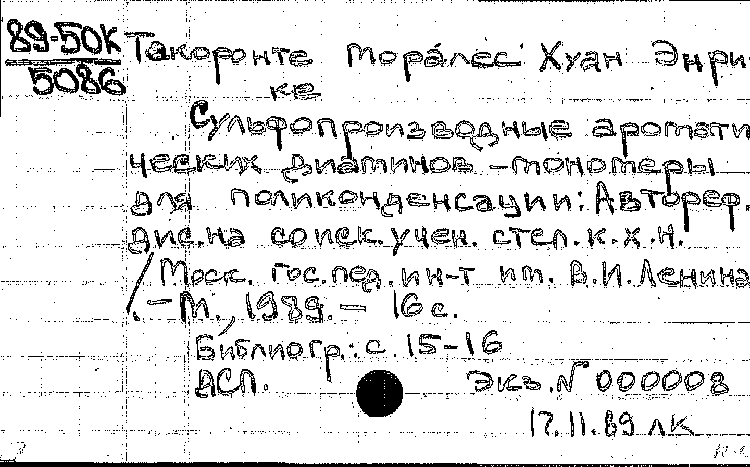 89-50К
5086
Такоронте Моралес Хуан Энри-
ке
Сульфопроизводные аромати
ческих диаминов - мономеры
для поликонденсации: Автореф.
дис. на соиск. учен. степ. к.х.н.
/ Моск. гос. пед. ин-т им. В.И. Ленина
. - М., 1989. - 16 с.
Библиогр.: с. 15-16
АСП.
Экз. № 000008
17.11.89 ЛК